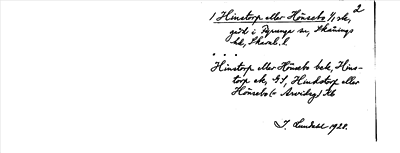 2
1 Hinstorp eller Hönsebo 1/1 sk,
gård i Byrunga sn, Skånings
hd, Skarab. l.
. . .
Hinstorp eller Hönsebo bek, Hins-
torp ek, GS, Hindstorp eller
Hönsebo (= Arvidsg) Kb
J. Lundahl 1928.